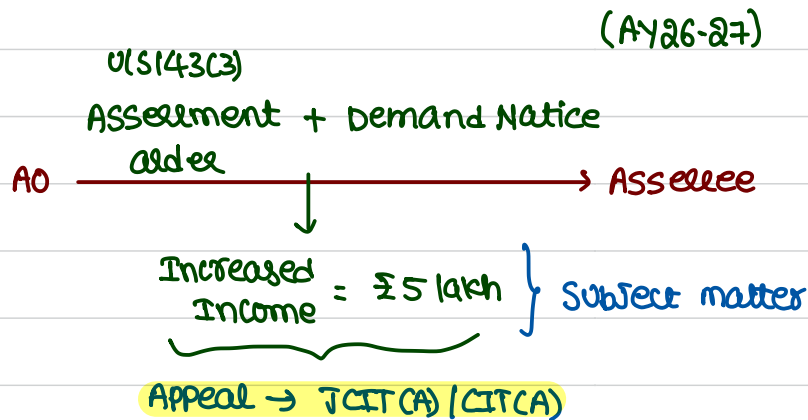 (AY26-27)
U/S143(3)
Assessment + Demand Notice
order
AO → Assessee
Increased
Income = ₹5 lakh } Subject matter
Appeal → JCIT(A)/CIT(A)